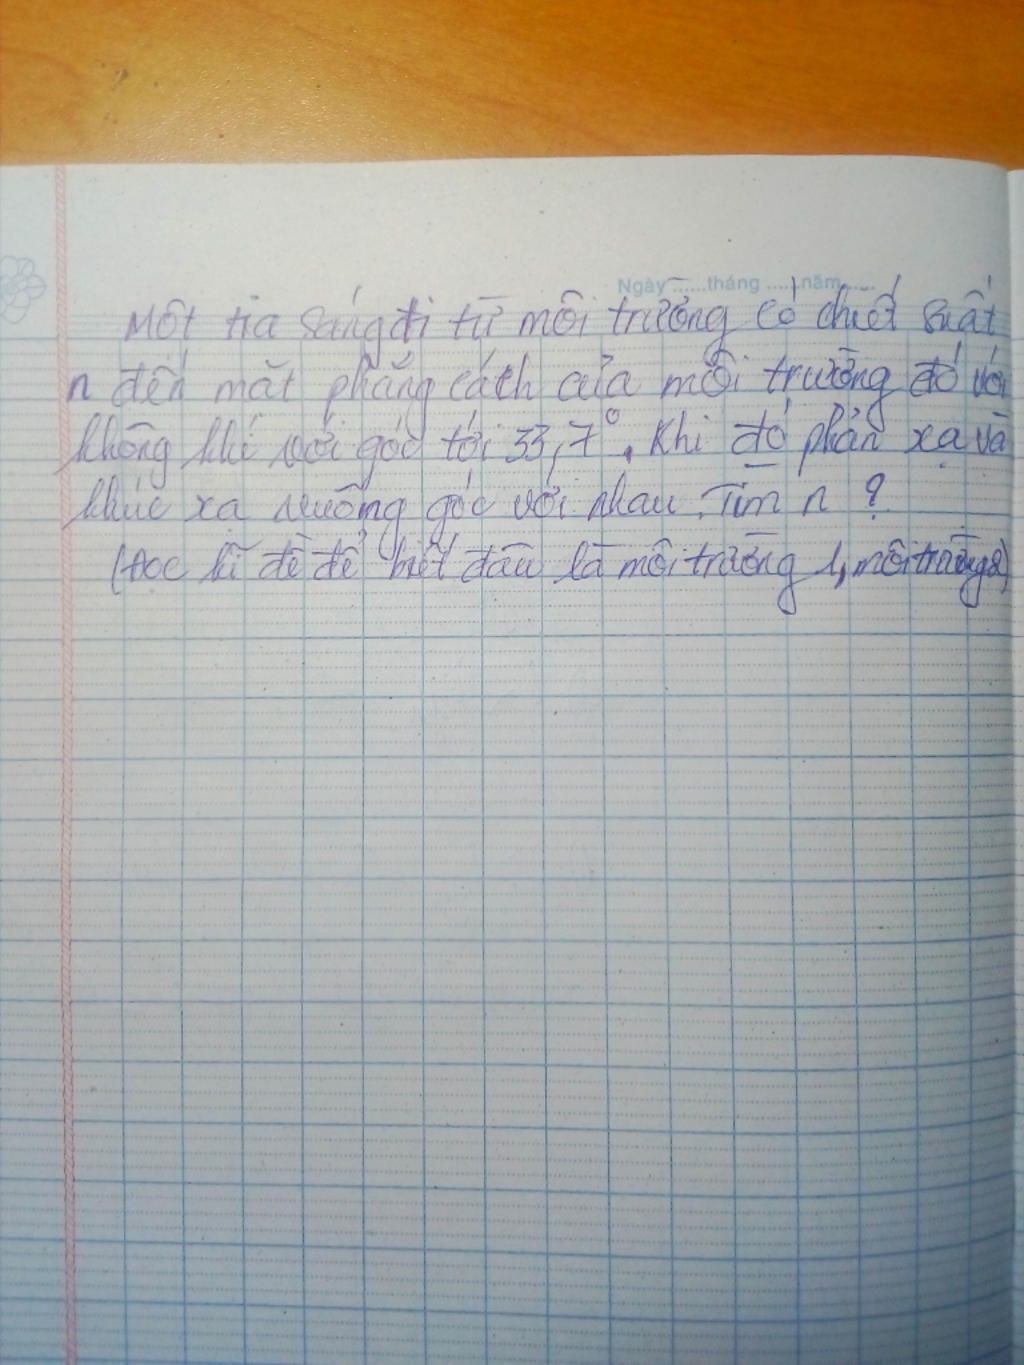 Ngày ......tháng ......năm......
Một tia sáng đi từ môi trường có chiết suất
n đến mặt phẳng cách của môi trường đó với
không khí với góc tới 33,7°. Khi đó phản xạ và
khúc xạ vuông góc với nhau. Tìm n ?
(Đọc kĩ đề để biết đâu là môi trường 1, môi trường 2)